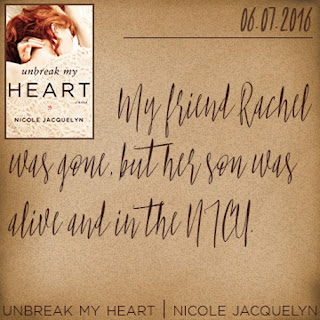 06.07.2016
unbreak my
HEART
a novel
NICOLE JACQUELYN
My friend Rachel
was gone, but her son was
alive and in the NICU.
UNBREAK MY HEART | NICOLE JACQUELYN